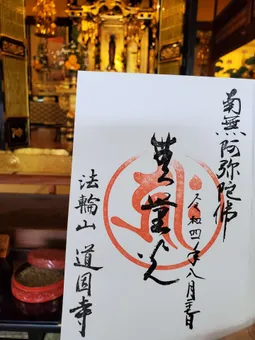 南無阿弥陀佛
令和四年八月三日
無量光
法輪山 道因寺